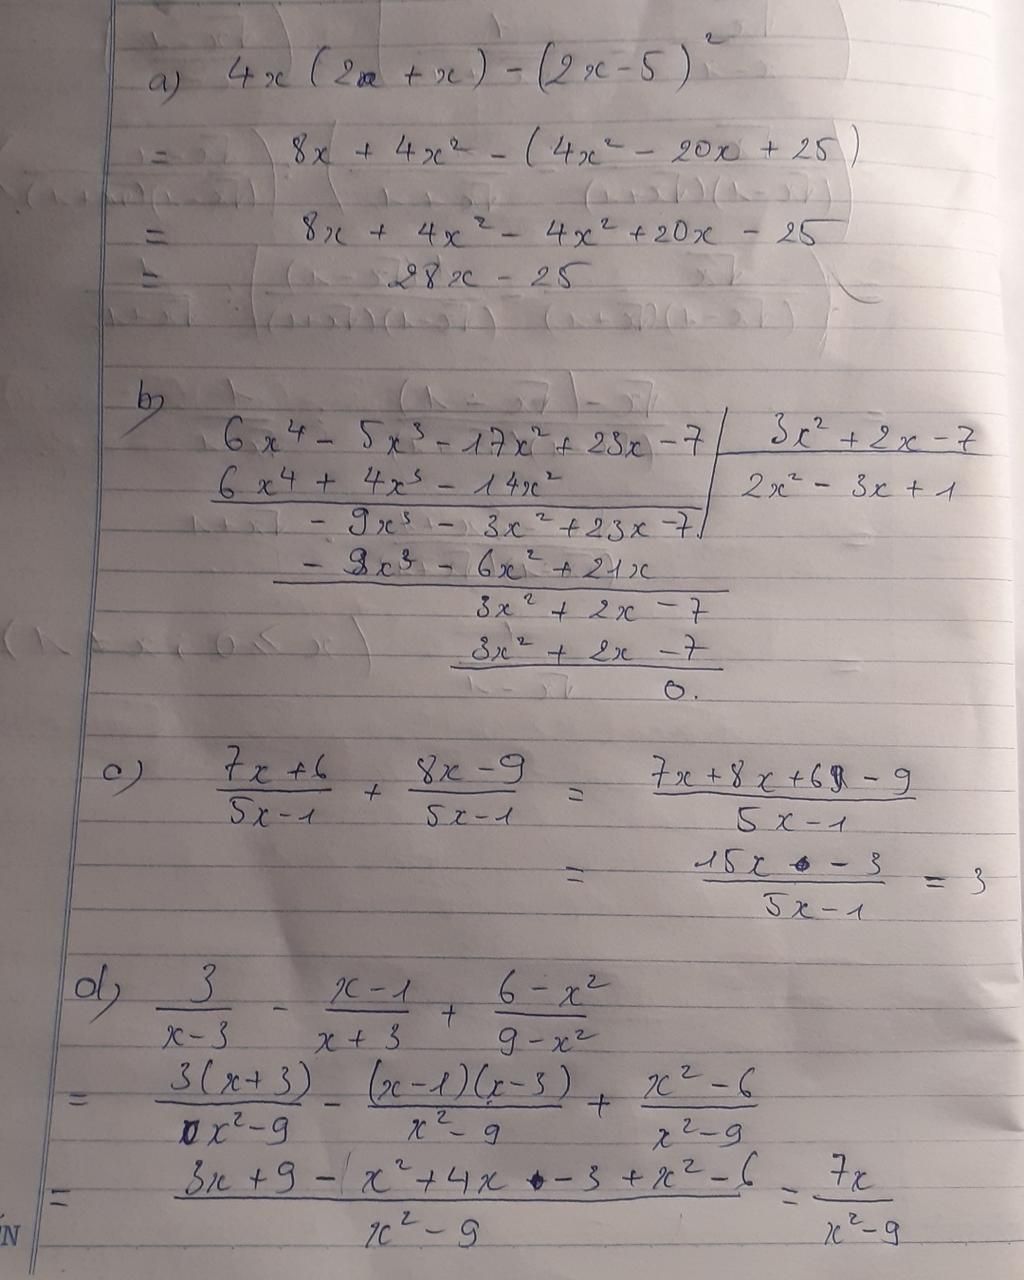 a) 4x (2x + x) - (2x - 5)²
= 8x + 4x² - (4x² - 20x + 25)
= 8x + 4x² - 4x² + 20x - 25
= 28x - 25
b)
6x⁴ - 5x³ - 17x² + 23x - 7 | 3x² + 2x - 7
6x⁴ + 4x³ - 14x² | 2x² - 3x + 1
- 9x³ - 3x² + 23x - 7
- 9x³ - 6x² + 21x
3x² + 2x - 7
3x² + 2x - 7
0.
c) (7x + 6)/(5x - 1) + (8x - 9)/(5x - 1) = (7x + 8x + 6 - 9)/(5x - 1)
= (15x - 3)/(5x - 1) = 3
d) 3/(x - 3) - (x - 1)/(x + 3) + (6 - x²)/(9 - x²)
= 3(x + 3)/(x² - 9) - (x - 1)(x - 3)/(x² - 9) + (x² - 6)/(x² - 9)
= (3x + 9 - x² + 4x - 3 + x² - 6)/(x² - 9) = 7x/(x² - 9)